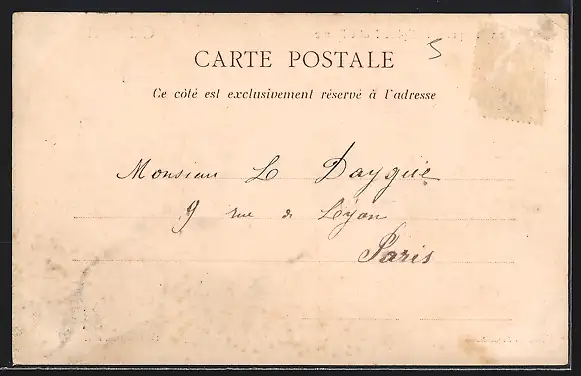 CARTE POSTALE
5
Ce côté est exclusivement réservé à l'adresse
Monsieur L Dayguie
9 rue de Lyon
Paris